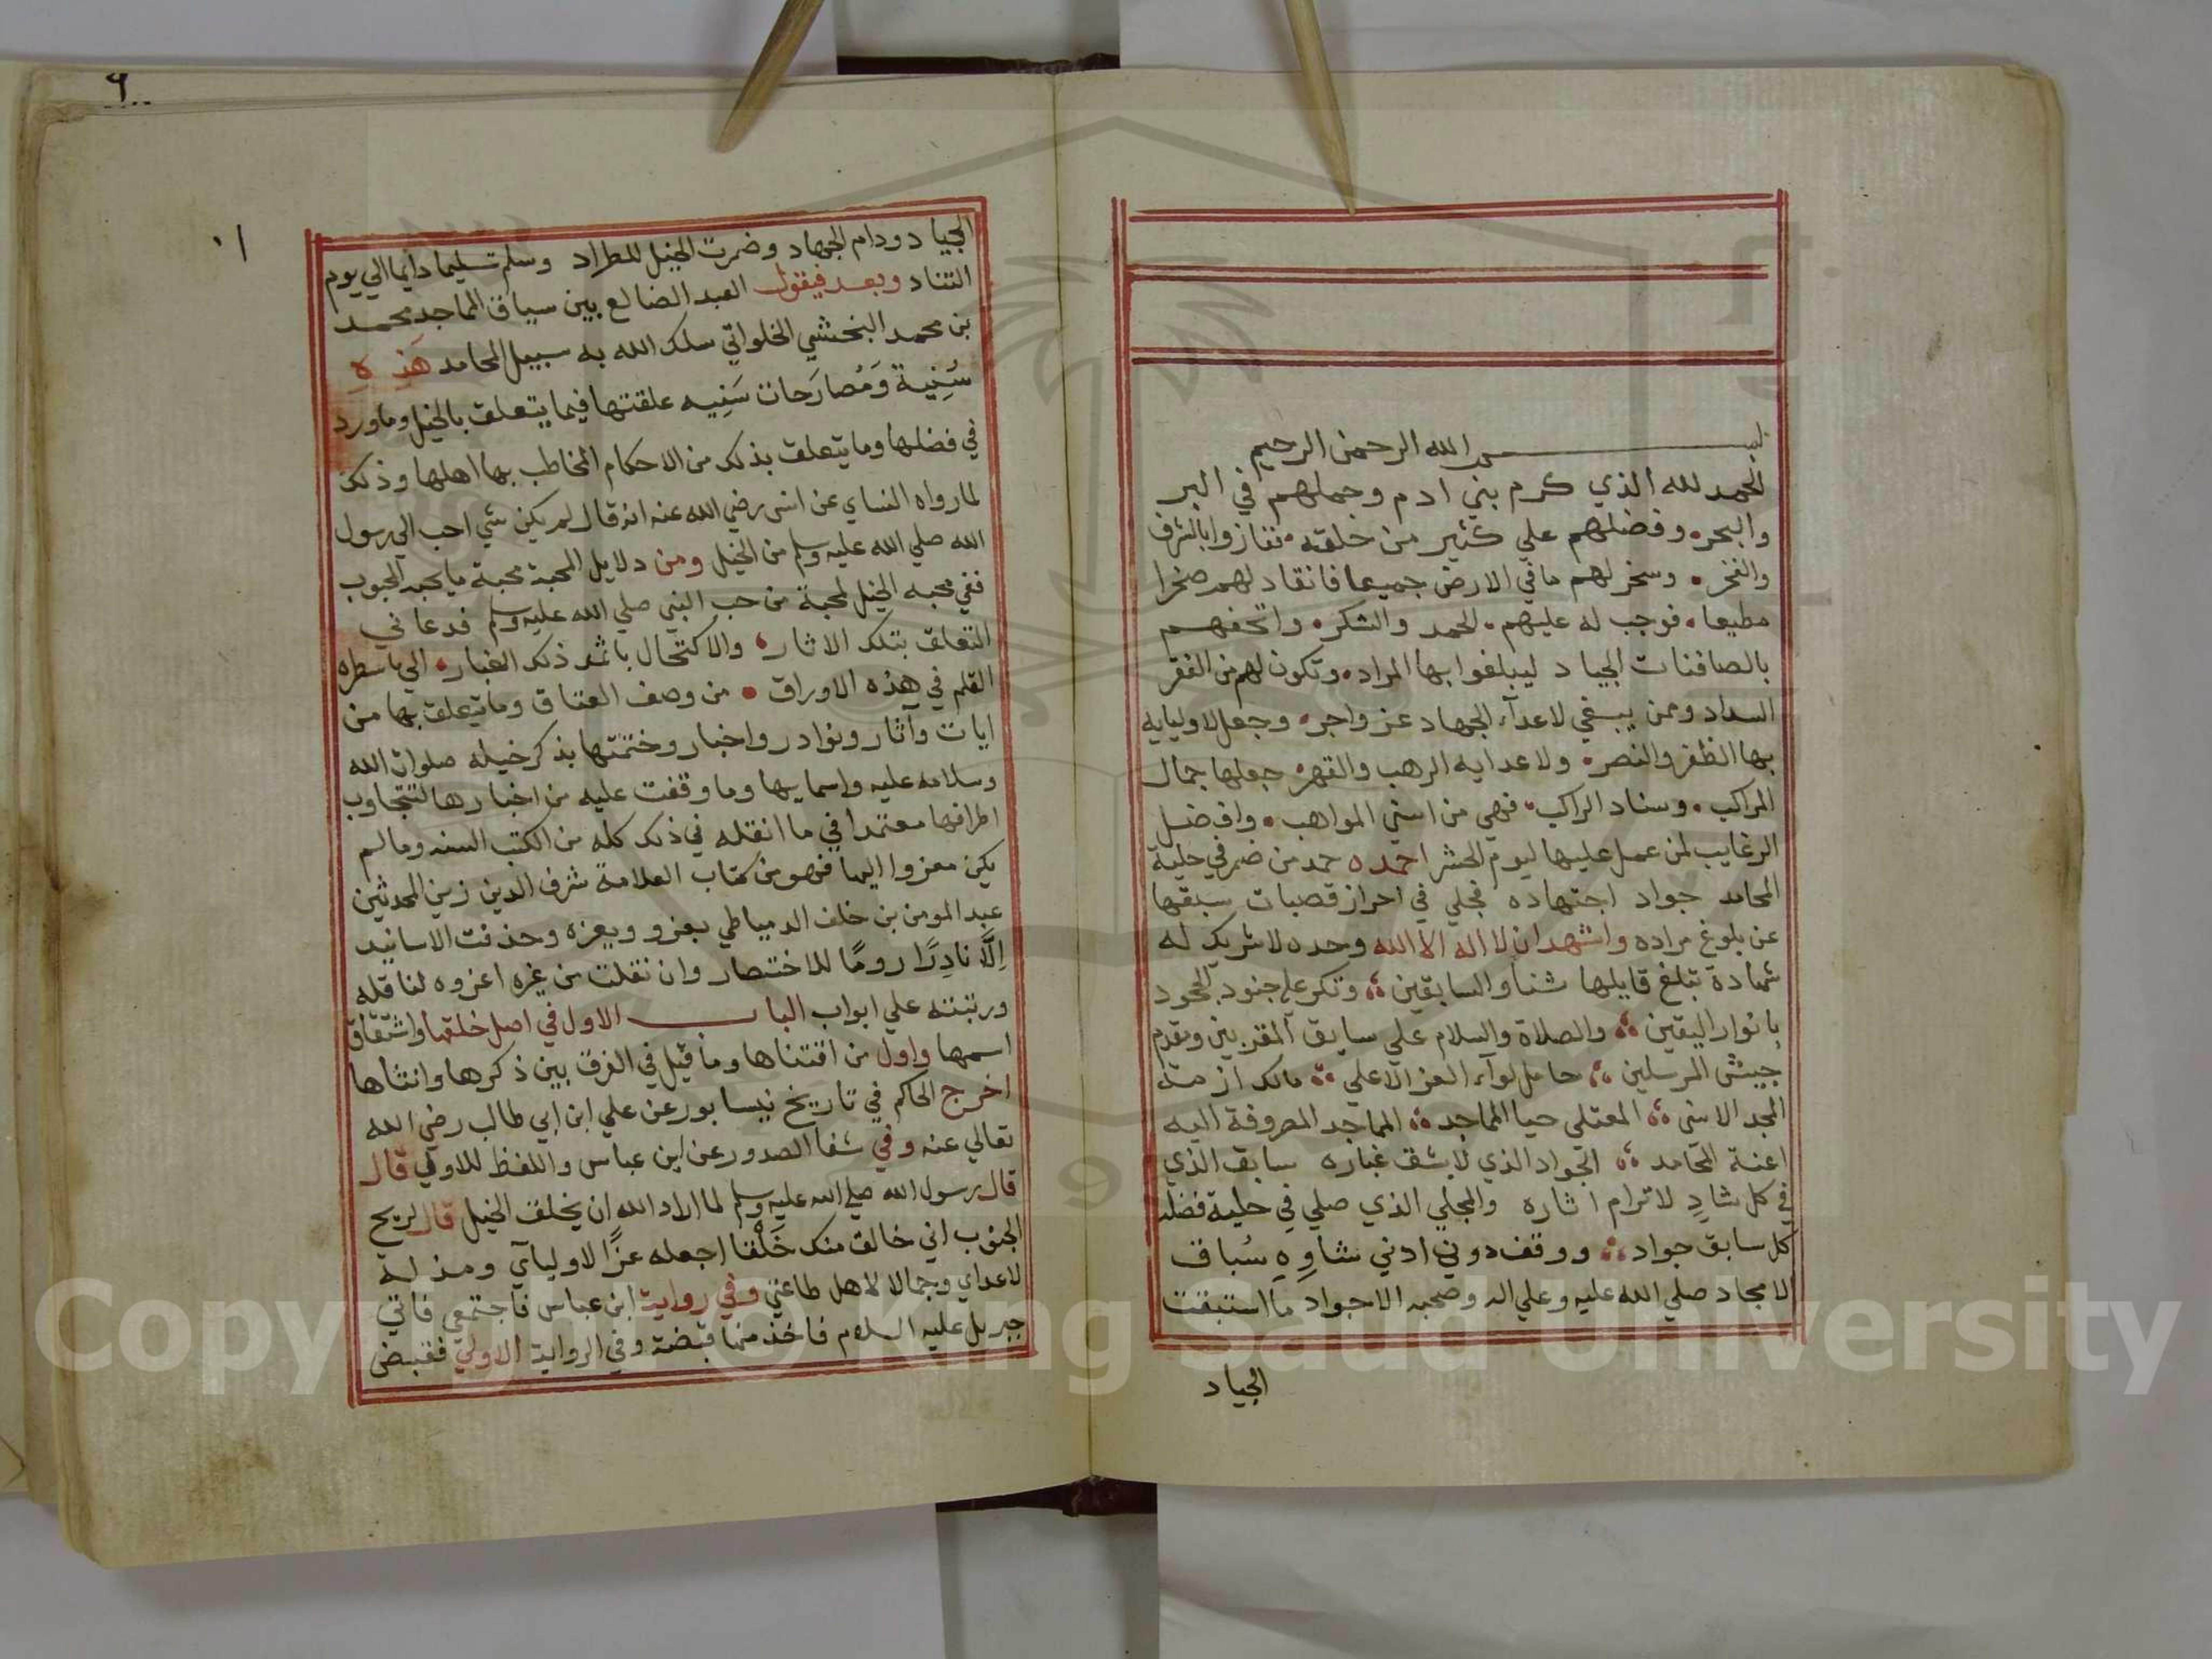 بسم الله الرحمن الرحيم
الحمد لله الذي كرم بني ادم وحملهم في البر
والبحر وفضلهم علي كثير من خلقه ففازوا بالشرف
والفخر وسخر لهم ما في الارض جميعا فانقاد لهم صخرا
مطيعا فوجب له عليهم الحمد والشكر واتحفهم
بالصافنات الجياد ليبلغوا بها المراد وتكون لهم من الفقر
السداد وممن يبغي لاعدآء الجهاد عز واجر وجعل لاوليايه
بها الظفر والنصر ولاعدايه الرهب والقهر جعلها جمال
المراكب وسناد الراكب فهي من اسني المواهب وافضل
الرغايب لمن عمل عليها ليوم الحشر احمده حمد من ضمر في حلبة
المحامد جواد اجتهاده فجلي في احراز قصبات سبقها
عن بلوغ مراده واشهد ان لا اله الا الله وحده لا شريك له
شهادة تبلغ قايلها شأو السابقين وتكر علي جنود الجحود
بانوار اليقين والصلاة والسلام علي سابق المقربين ومقدم
جيش المرسلين حامل لوآء العز الاعلي مالك ازمة
المجد الاسني المعتلي حيا الماجد الماجد المصروفة اليه
اعنة المحامد الجواد الذي لا يشق غباره سابق الذي
في كل شادٍ لا ترام اثاره والمجلي الذي صلي في حلبة فضله
كل سابق جواد ووقف دون ادني شاوِهِ سُباق
الامجاد صلي الله عليه وعلي اله وصحبه الاجواد ما استبقت
الجياد
٩
١٠
الجياد ودام الجهاد وضمرت الخيل للطراد وسلم تسليما دايما الي يوم
التناد وبعد فيقول العبد الضالع بين سياق الماجد محمد
بن محمد البخشي الخلواتي سلك الله به سبيل المحامد هذه
سُنِية وَمُصارَحات سَنِيه علقتها فيما يتعلق بالخيل وما ورد
في فضلها وما يتعلق بذلك من الاحكام المخاطب بها اهلها وذلك
لما رواه النساي عن انس رضي الله عنه انه قال لم يكن شي احب الي رسول
الله صلي الله عليه وسلم من الخيل ومن دلايل المحبة محبة ما يحبه المحبوب
ففي محبه الخيل لمحبة من حب النبي صلي الله عليه وسلم فدعاني
التعلق بتلك الاثار والاكتحال باثمد ذلك الغبار الي ما سطره
القلم في هذه الاوراق من وصف العتاق وما يتعلق بها من
ايات وآثار ونوادر واخبار وختمتها بذكر خيله صلوات الله
وسلامه عليه واسمايها وما وقفت عليه من اخبارها لتتجاوب
اطرافها معتمدا في ما انقله في ذلك كله من الكتب السته وما لم
يكن معزوا اليها فهو من كتاب العلامة شرف الدين زين المحدثين
عبد المومن بن خلف الدمياطي بعزو وبغيره وحذفت الاسانيد
اِلّاَ نادِرًا رومًا للاختصار وان نقلت من غيره اعزوه لناقله
ورتبته علي ابواب الباب الاول في اصل خلقها واشتقاق
اسمها واول من اقتناها وما قيل في الفرق بين ذكرها وانثاها
اخرج الحاكم في تاريخ نيسابور عن علي ابن ابي طالب رضي الله
تعالي عنه وفي شفا الصدور عن ابن عباس واللفظ للاولي قال
قال رسول الله صلي الله عليه وسلم لما اراد الله ان يخلق الخيل قال لريح
الجنوب اني خالق منك خَلْقا اجعله عزًا لاوليآي ومذلة
لاعداي وجمالا لاهل طاعتي وفي رواية ابن عباس فاجتمعي فاتي
جبريل عليه السلام فاخذ منها قبضة وفي الرواية الاولي فقبض
Copyright © King Saud University